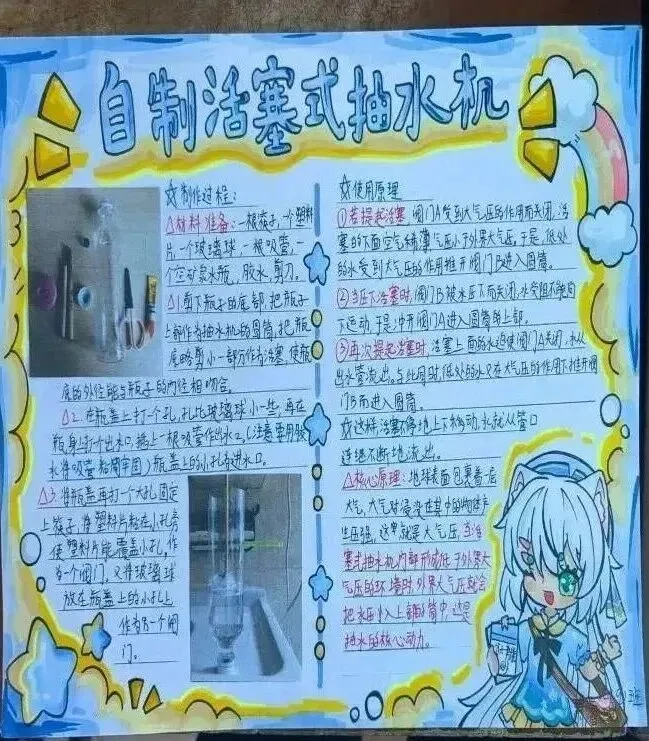 自制活塞式抽水机
☆制作过程:
△材料准备:一根筷子,一个塑料
片,一个玻璃球,一根吸管,一
个空矿泉水瓶,胶水,剪刀。
△1.剪下瓶子的底部,把瓶子
上部作为抽水机的圆筒,把瓶
底略剪小一部分作为活塞,使瓶
底的外径能与瓶子的内径相吻合。
△2.在瓶盖上打一个孔,孔比玻璃球小一些,再在
瓶身上打个出水口,插上一根吸管作出水口(注意要用胶
水将吸管粘稠牢固)瓶盖上的小孔为进水口。
△3.将瓶盖再打一个大孔固定
上筷子,将塑料片粘在小孔旁
使塑料片能覆盖小孔,作
为一个阀门,又将玻璃球
放在瓶盖上的小孔上
作为另一个阀
门。
☆使用原理
①若提起活塞,阀门A受到大气压的作用而关闭,活
塞的下面空气稀薄气压小于外界大气压,于是,低处
的水受到大气压的作用推开阀门B进入圆筒。
②当压下活塞时,阀门B被水压下而关闭,水受阻不能向
下运动,于是冲开阀门A进入圆筒的上部。
③再次提起活塞时,活塞上面的水迫使阀门A关闭,水从
出水管流出。与此同时,低处的水又在大气压的作用下推开阀
门B而进入圆筒。
☆这样活塞不停地上下移动,水就从管口
连绵不断地流出。
△核心原理:地球表面包裹着一层
大气,大气对浸没在其中的物体产
生压强,这就是大气压,当活
塞式抽水机内部形成低于外界大
气压的环境时外界大气压就会
把水压中入上部的筒中,这是
抽水的核心动力。
班